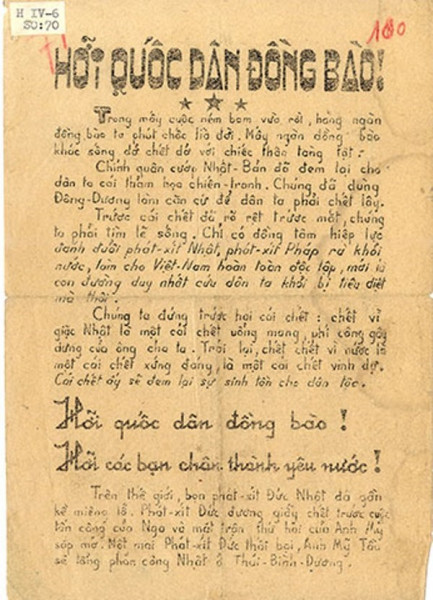 H IV-6
SO:70
100
HỠI QUỐC DÂN ĐỒNG BÀO!
Trong mấy cuộc ném bom vừa rồi, hàng ngàn
đồng bào ta phút chốc lìa đời. Mấy ngàn đồng bào
khác sống dở chết dở với chiếc thân tàng tật:
Chính quân cướp Nhật-Bản đã đem lại cho
dân ta cái thảm họa chiến-tranh. Chúng đã dùng
Đông-Dương làm căn cứ để dân ta phải chết lây.
Trước cái chết đã rõ rệt trước mắt, chúng
ta phải tìm lẽ sống. Chỉ có đồng tâm hiệp lực
đánh đuổi phát-xít Nhật, phát-xít Pháp ra khỏi
nước, làm cho Việt-Nam hoàn toàn độc lập, mới là
con đường duy nhất cứu dân ta khỏi bị tiêu diệt
mà thôi.
Chúng ta đứng trước hai cái chết: chết vì
giặc Nhật là một cái chết uổng mạng, phí công gây
dựng của ông cha ta. Trái lại, chết vì nước là
một cái chết xứng đáng, là một cái chết vinh dự.
Cái chết ấy sẽ đem lại sự sinh tồn cho dân tộc.
Hỡi quốc dân đồng bào!
Hỡi các bạn chân thành yêu nước!
Trên thế giới, bọn phát-xít Đức Nhật đã gần
kề miệng lỗ. Phát-xít Đức đương giẫy chết trước cuộc
tấn công của Nga và mặt trận thứ hai của Anh Mỹ
sắp mở. Một mai Phát-xít Đức thất bại, Anh Mỹ Tầu
sẽ tổng phản công Nhật ở Thái-Bình-Dương.